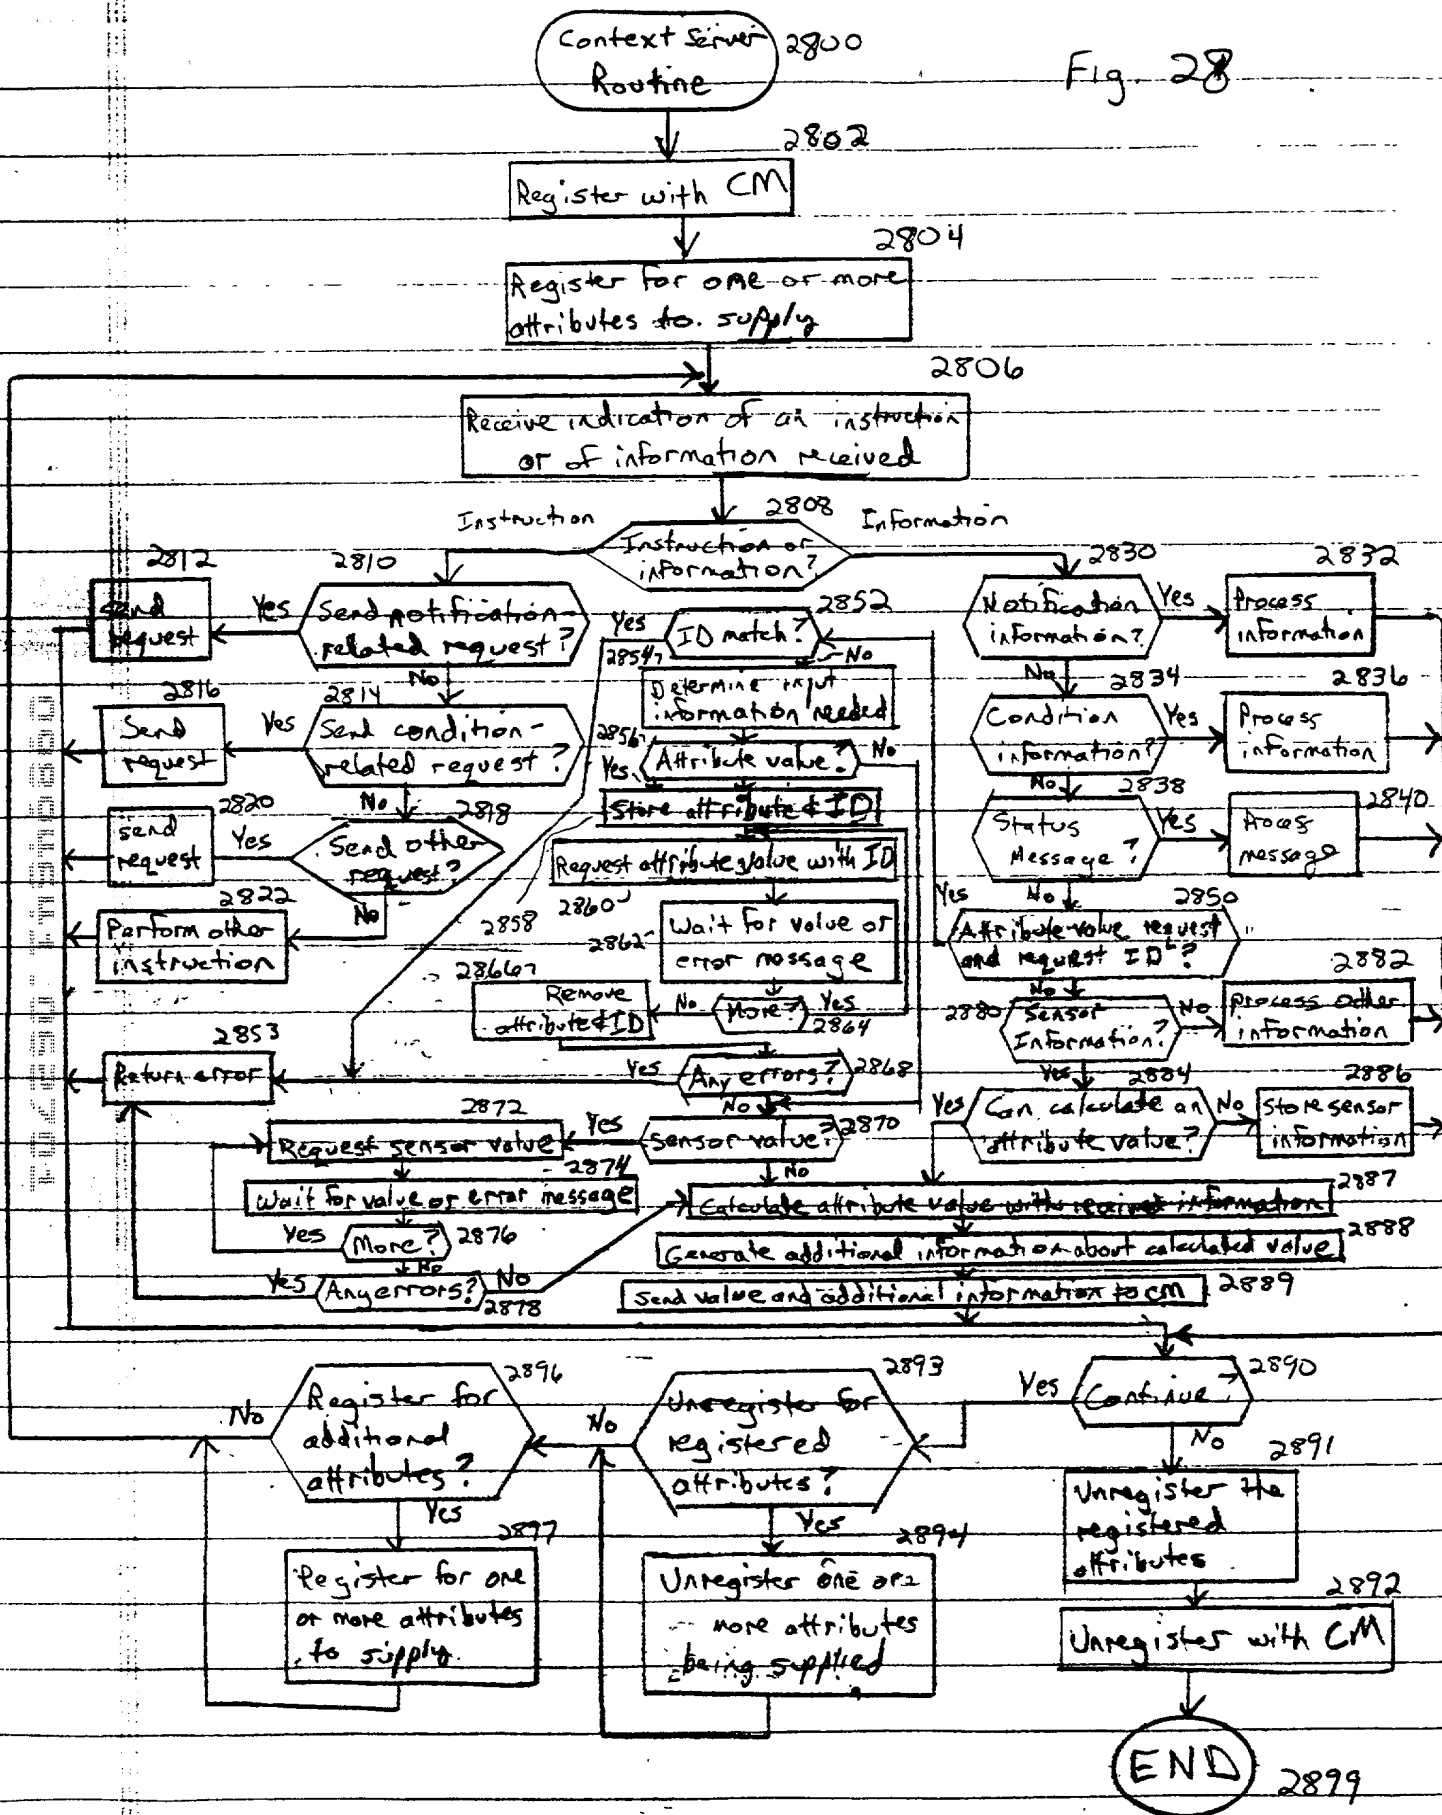 Context Server
Routine
2800
Fig. 28
2802
Register with CM
2804
Register for one or more
attributes to supply
2806
Receive indication of an instruction
or of information received
2808
Instruction
Instruction or
information?
Information
2812
Send
request
Yes
2810
Send notification-
related request?
No
2816
Send
request
Yes
2814
Send condition-
related request?
No
2820
Send
request
Yes
2818
Send other
request?
No
2822
Perform other
instruction
2853
Return error
Yes
2852
ID match?
No
2854
Determine input
information needed
2856
Attribute value?
No
Yes
Store attribute & ID
2858
Request attribute value with ID
2860
2862
Wait for value or
error message
2866
Remove
attribute & ID
No
More?
Yes
2864
Yes
Any errors?
2868
No
2872
Request sensor value
Yes
Sensor value?
2870
No
2874
Wait for value or error message
Yes
More?
2876
No
Yes
Any errors?
No
2878
2830
Notification
information?
Yes
2832
Process
information
No
2834
Condition
information?
Yes
2836
Process
information
No
2838
Status
Message?
Yes
2840
Process
message
No
2850
Yes
Attribute value request
and request ID?
No
2880
Sensor
Information?
No
2882
Process other
information
Yes
2884
Yes
Can calculate an
attribute value?
No
2886
Store sensor
information
2887
Calculate attribute value with received information
2888
Generate additional information about calculated value
Send value and additional information to CM
2889
2890
Continue?
Yes
No
2891
Unregister the
registered
attributes
2892
Unregister with CM
END
2899
2893
Unregister for
registered
attributes?
No
Yes
2894
Unregister one or
more attributes
being supplied
2896
Register for
additional
attributes?
No
Yes
2897
Register for one
or more attributes
to supply